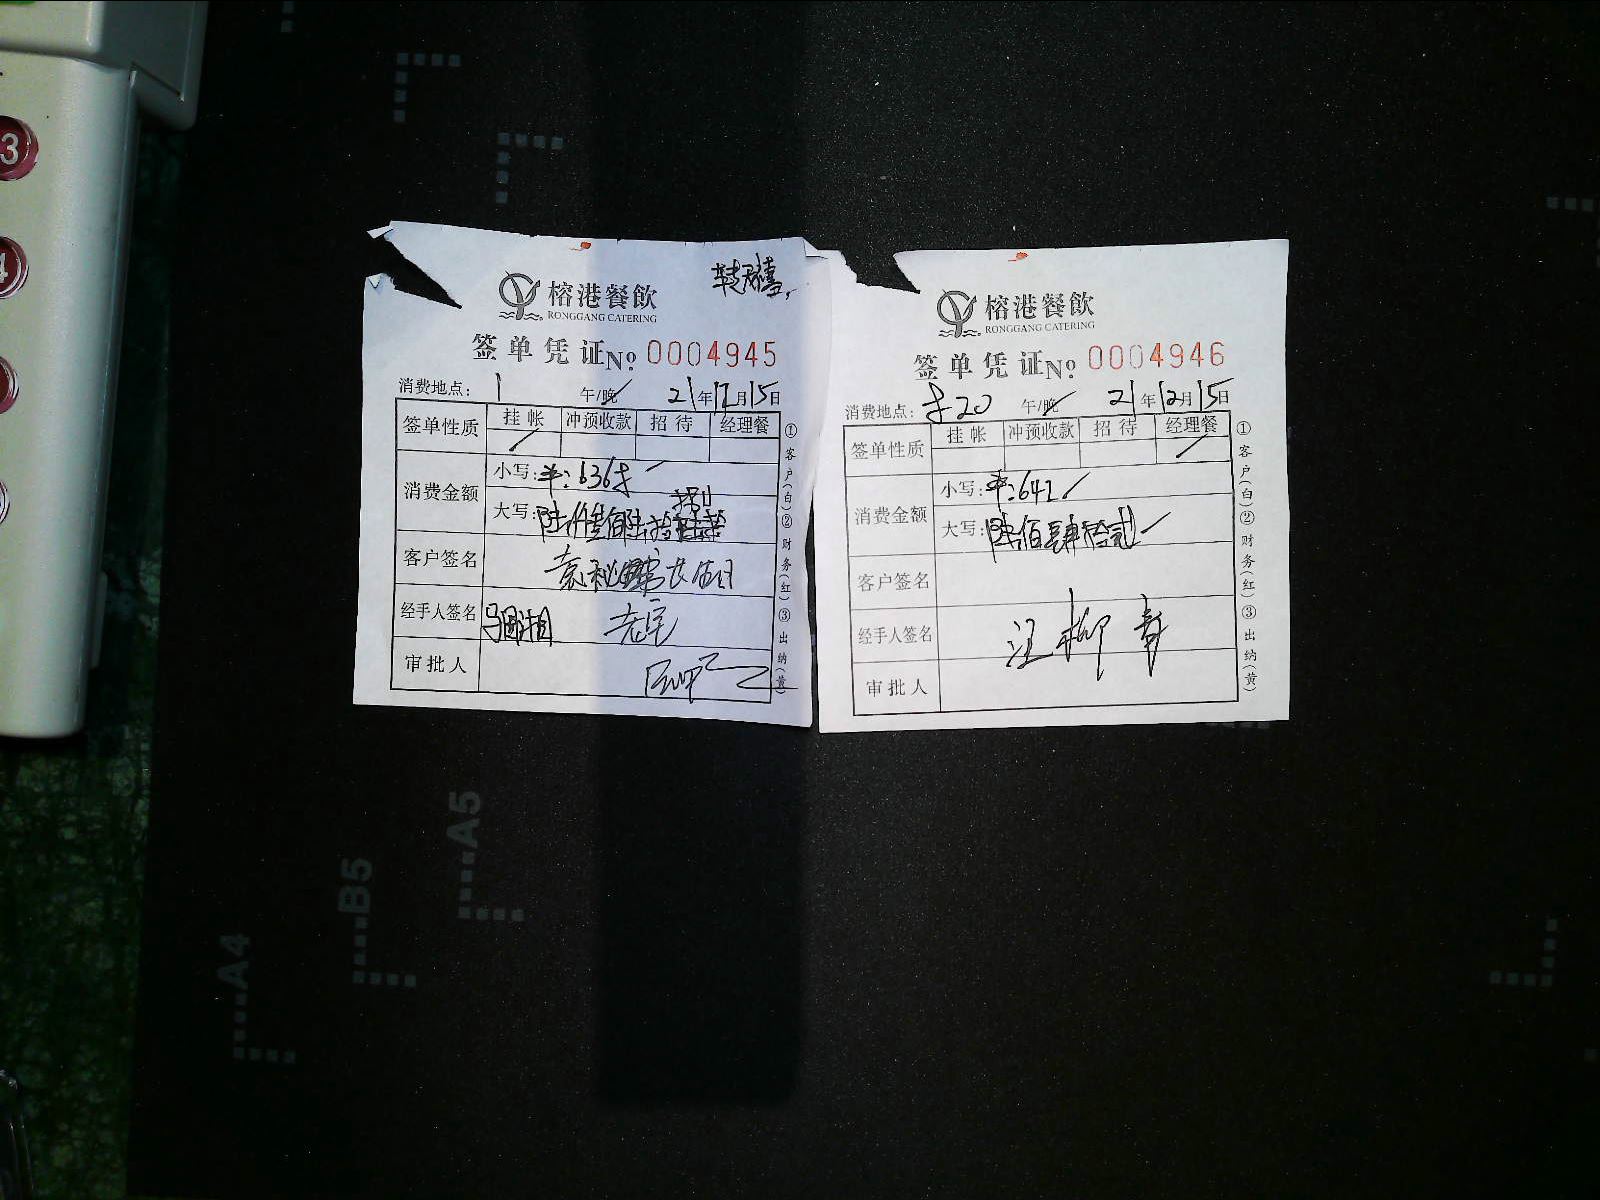 榕港餐飲
RONGGANG CATERING
签单凭证 No 0004945
消费地点: 1 午/晚 21年12月15日
签单性质 挂帐 冲预收款 招待 经理餐
消费金额 小写:
大写:
客户签名
经手人签名
审批人
①客户(白)②财务(红)③出纳(黄)
榕港餐飲
RONGGANG CATERING
签单凭证 No 0004946
消费地点: 午/晚 21年12月15日
签单性质 挂帐 冲预收款 招待 经理餐
消费金额 小写: ¥:642
大写: 陆佰肆拾贰
客户签名
经手人签名 汪柳
审批人
①客户(白)②财务(红)③出纳(黄)
3
4
A4
B5
A5